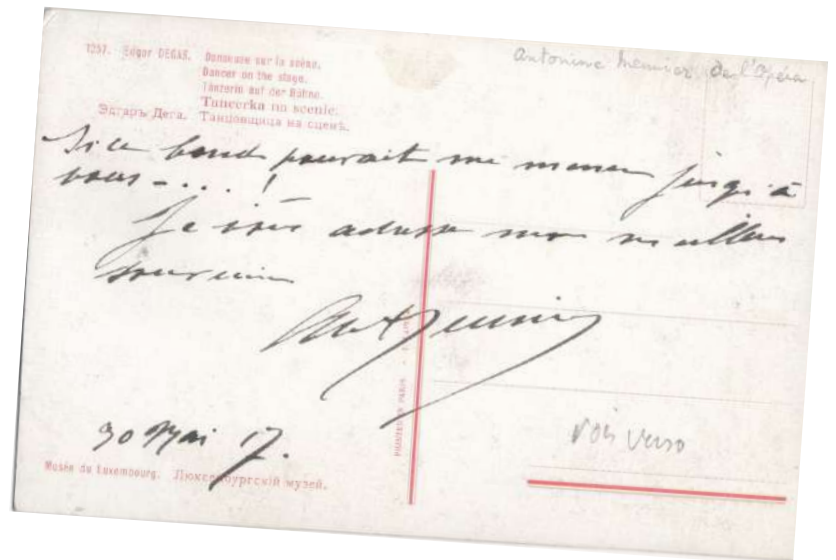 1257. Edgar DEGAS. Danseuse sur la scène.
Dancer on the stage.
Tänzerin auf der Bühne.
Tancerka na scenie.
Эдгаръ Дега. Танцовщица на сценѣ.
Antonine Meunier de l'Opéra
Si ce bond pouvait me mener jusqu'à
vous - . . . !
Je vous adresse mon meilleur
souvenir
Ant Meunier
30 Mai 17.
Musée du Luxembourg. Люксембургскій музей.
PRINTED IN PARIS
voir verso